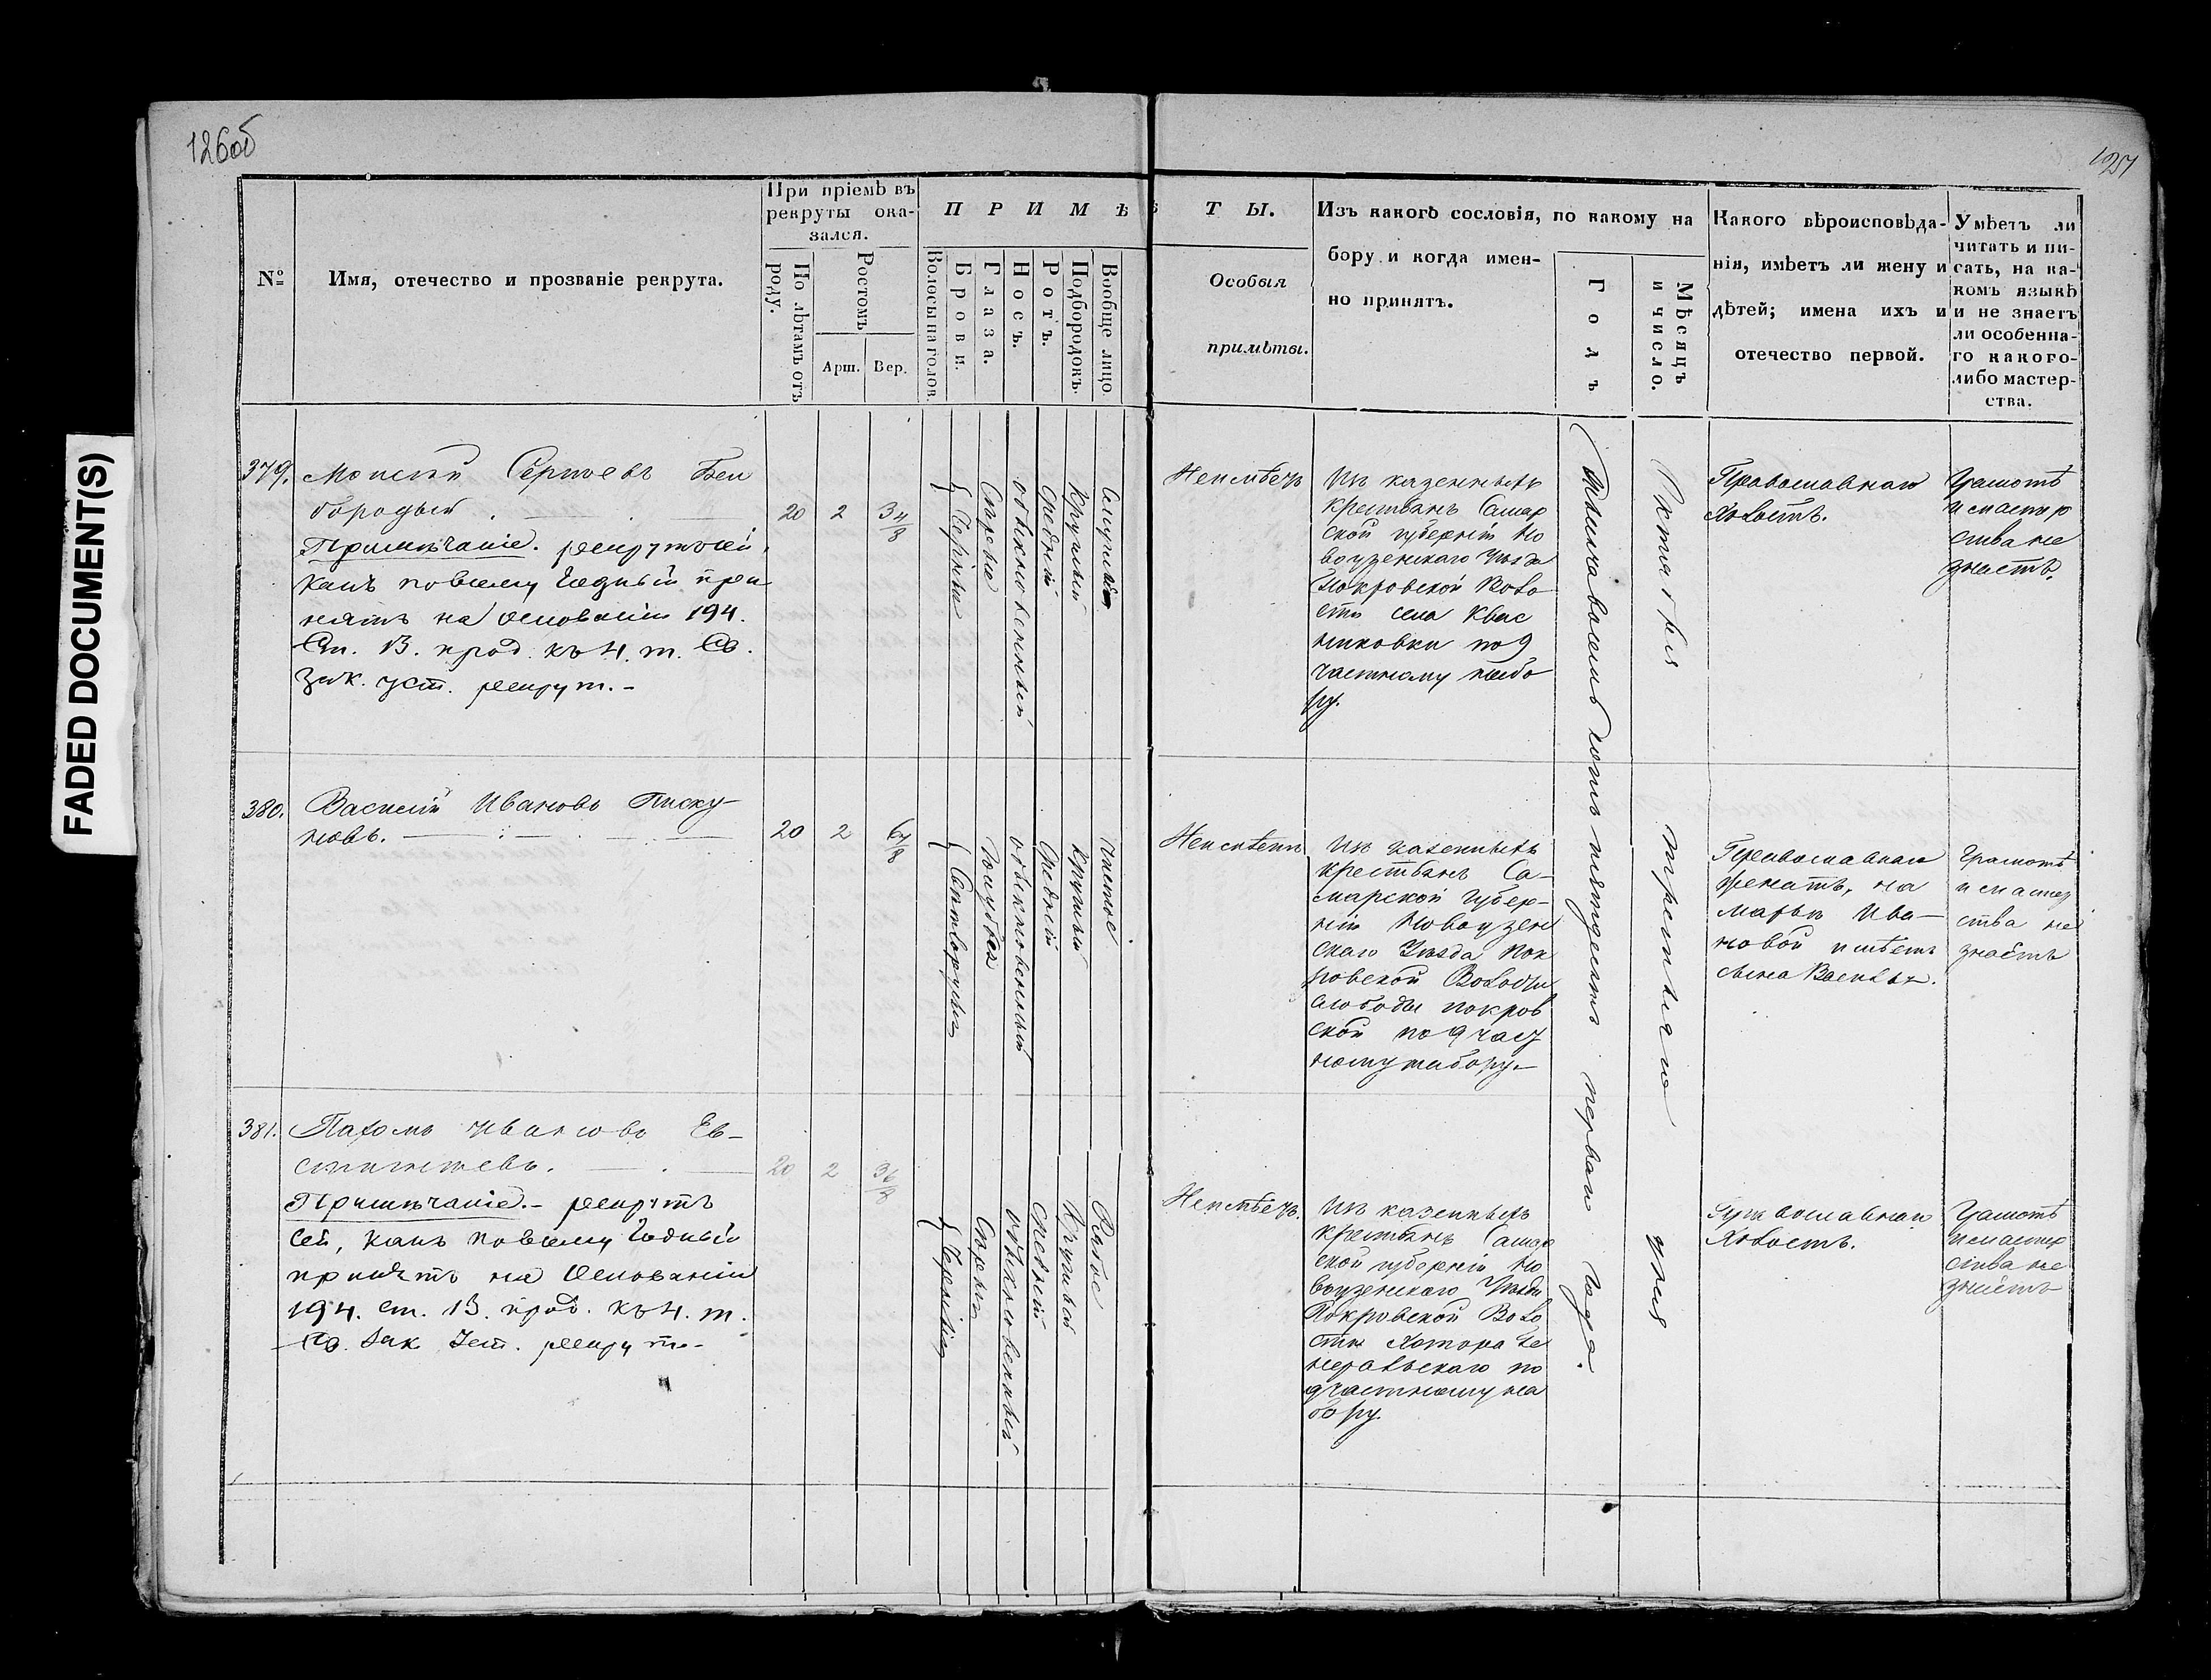 126об
127
FADED DOCUMENT(S)
№
Имя, отечество и прозваніе рекрута.
При пріемѣ въ
рекруты ока-
зался.
По лѣтамъ отъ
роду.
Ростомъ
Арш.
Вер.
П Р И М Ѣ
Волосы на голов.
Брови.
Глаза.
Носъ.
Ротъ.
Подбородокъ.
Вообще лицо.
Т Ы.
Особыя
примѣты.
Изъ какого сословія, по какому на
бору и когда имен-
но принятъ.
Годъ
Мѣсяцъ
и число.
Какого вѣроисповѣда-
нія, имѣетъ ли жену и
дѣтей; имена ихъ и
отечество первой.
Умѣетъ ли
читать и пи-
сать, на ка-
комъ языкѣ
и не знаетъ
ли особенна-
го какого-
либо мастер-
ства.
379.
Моисей Сергѣевъ Бѣл
бородый.
Примѣчаніе. рекрутъ сей,
какъ повсему Годный при
нятъ на основаніи 194.
Ст. 13. прод. къ 4. т. Св.
Зак. уст. рекрут.-
20
2
3 4/8
Черныя
Сѣрые
обыкновенный
средній
Круглый
Смуглое
Неимѣетъ
Изъ казенныхъ
крестьянъ Самар
ской губерніи Но
воузенскаго Уѣзда
Покровской Воло
сти села Квас
никовки по 9
частному набо
ру.
Православнаго
Холостъ.
Грамотѣ
и мастер
ства не
знаетъ.
Тысяча восемь сотъ пятдесятъ перваго года.
Октября третьяго дня
380.
Василій Ивановъ Писку-
новъ.
20
2
6 4/8
Голубые
обыкновенный
средній
круглый
чистое
Неимѣетъ
Изъ казенныхъ
крестьянъ Са-
марской Губер-
ніи Новоузен
скаго Уѣзда Пок
ровской Волости
слободы покров
ской по 9 част
ному набору.-
Православнаго
женатъ, на
Марьѣ Ива-
новой имѣетъ
сына Василья.
Грамотѣ
и мастер
ства не
знаетъ
381.
Пахомъ Ивановъ Ев-
стигнѣевъ.
Примѣчаніе.- рекрутъ
сей, какъ повсему Годный
принятъ на Основаніи
194. ст. 13. прод. къ 4. т.
Св. Зак Уст. рекрут.-
20
2
3 6/8
Черныя
Сѣрые
обыкновенный
средній
Круглый
Рябое
Неимѣетъ.
Изъ казенныхъ
крестьянъ Самар
ской губерніи Но
воузенскаго Уѣзда
Покровской Воло
сти Хутора Ге
неральскаго по
9 частному на
бору.
Православнаго
Холостъ.
Грамотѣ
и мастер
ства не
знаетъ